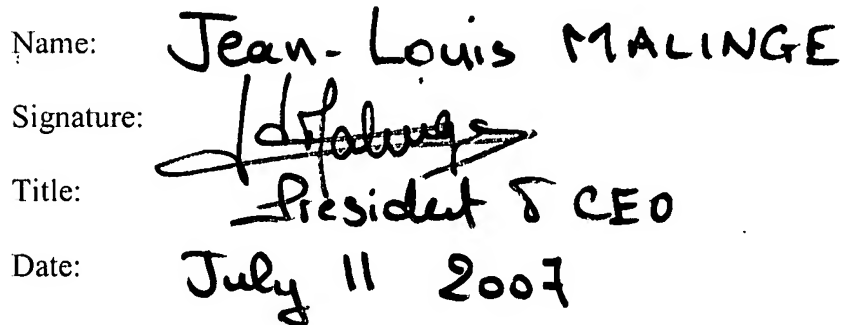 Name: Jean-Louis MALINGE
Signature: JLMalinge
Title: President & CEO
Date: July 11 2007